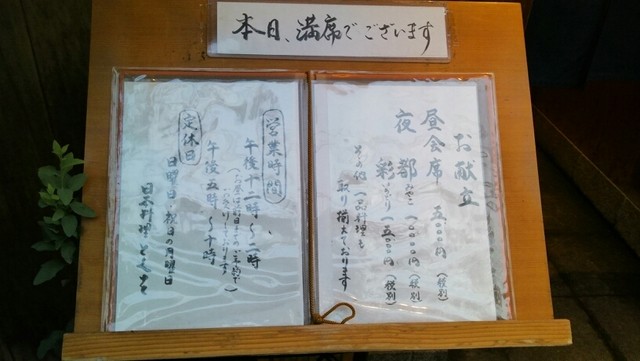 本日、満席でございます
お献立
昼会席 五、〇〇〇円(税別)
夜 都 みやこ 一〇、〇〇〇円(税別)
彩 いろどり 一五、〇〇〇円(税別)
その他 一品料理も
取り揃えております
営業時間
午後十二時〜二時
午後五時〜十時
定休日
日曜日・祝日の月曜日
日本料理